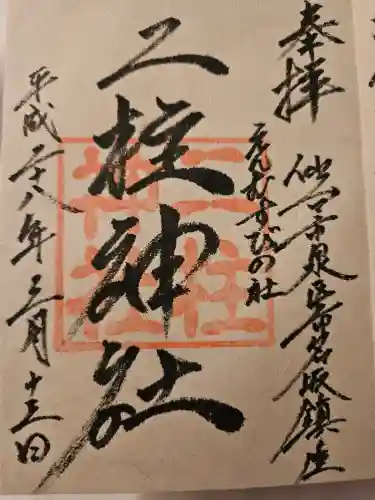 奉拝
仙台市泉区市名坂鎮座
えんむすびの社
二柱神社
平成二十八年三月十三日
二柱神社